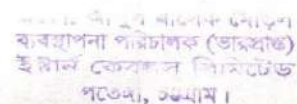 ব্যবস্থাপনা পরিচালক (ভারপ্রাপ্ত)
ইস্টার্ন কেবলস লিমিটেড
পতেঙ্গা, চট্টগ্রাম।